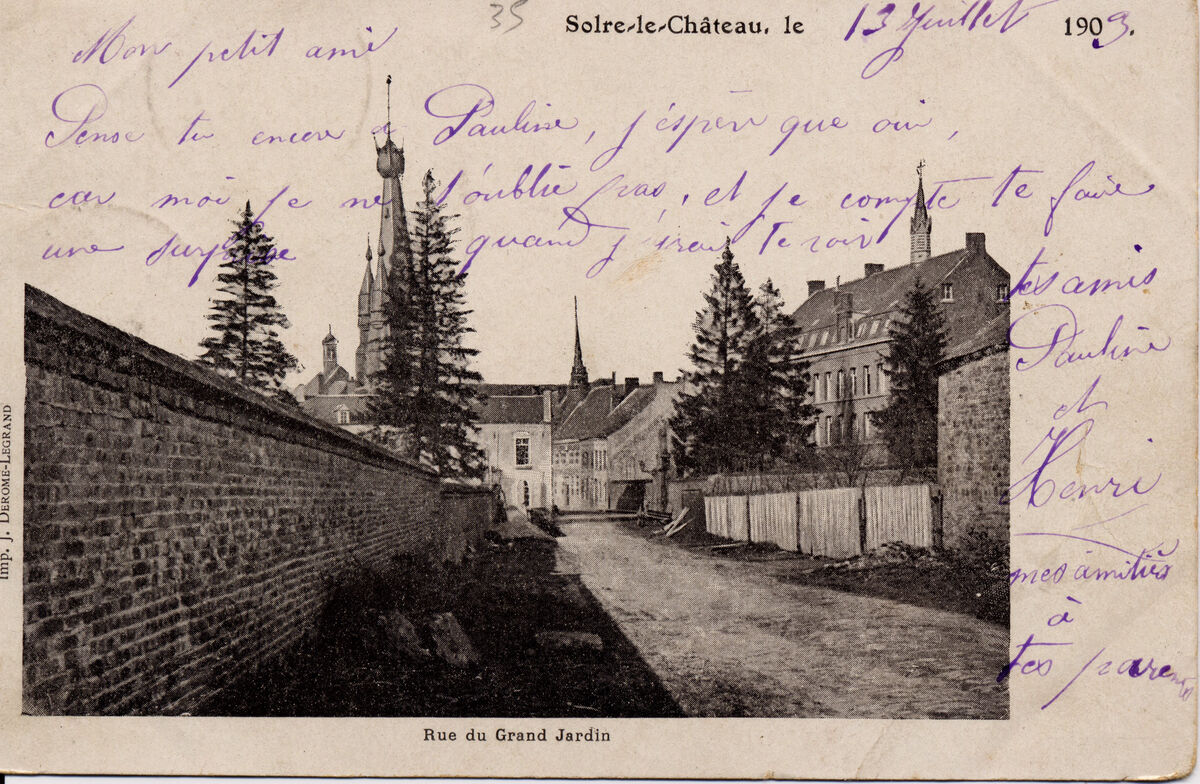 35
Solre-le-Château, le 13 Juillet 1903.
Mon petit ami
Pense tu encore a Pauline, j'éspère que oui,
car moi je ne t'oublie pas, et je compte te faire
une surprise quand j'irai te voir
tes amis
Pauline
et
Henri
mes amitiés
à
tes parents
Imp. J. Derome-Legrand
Rue du Grand Jardin